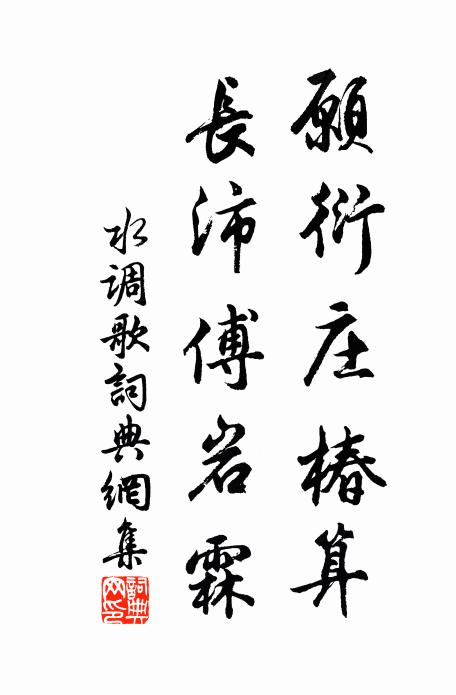 願衍庄椿算
長沛傅岩霖
水调歌詞典網集
詞典
网印